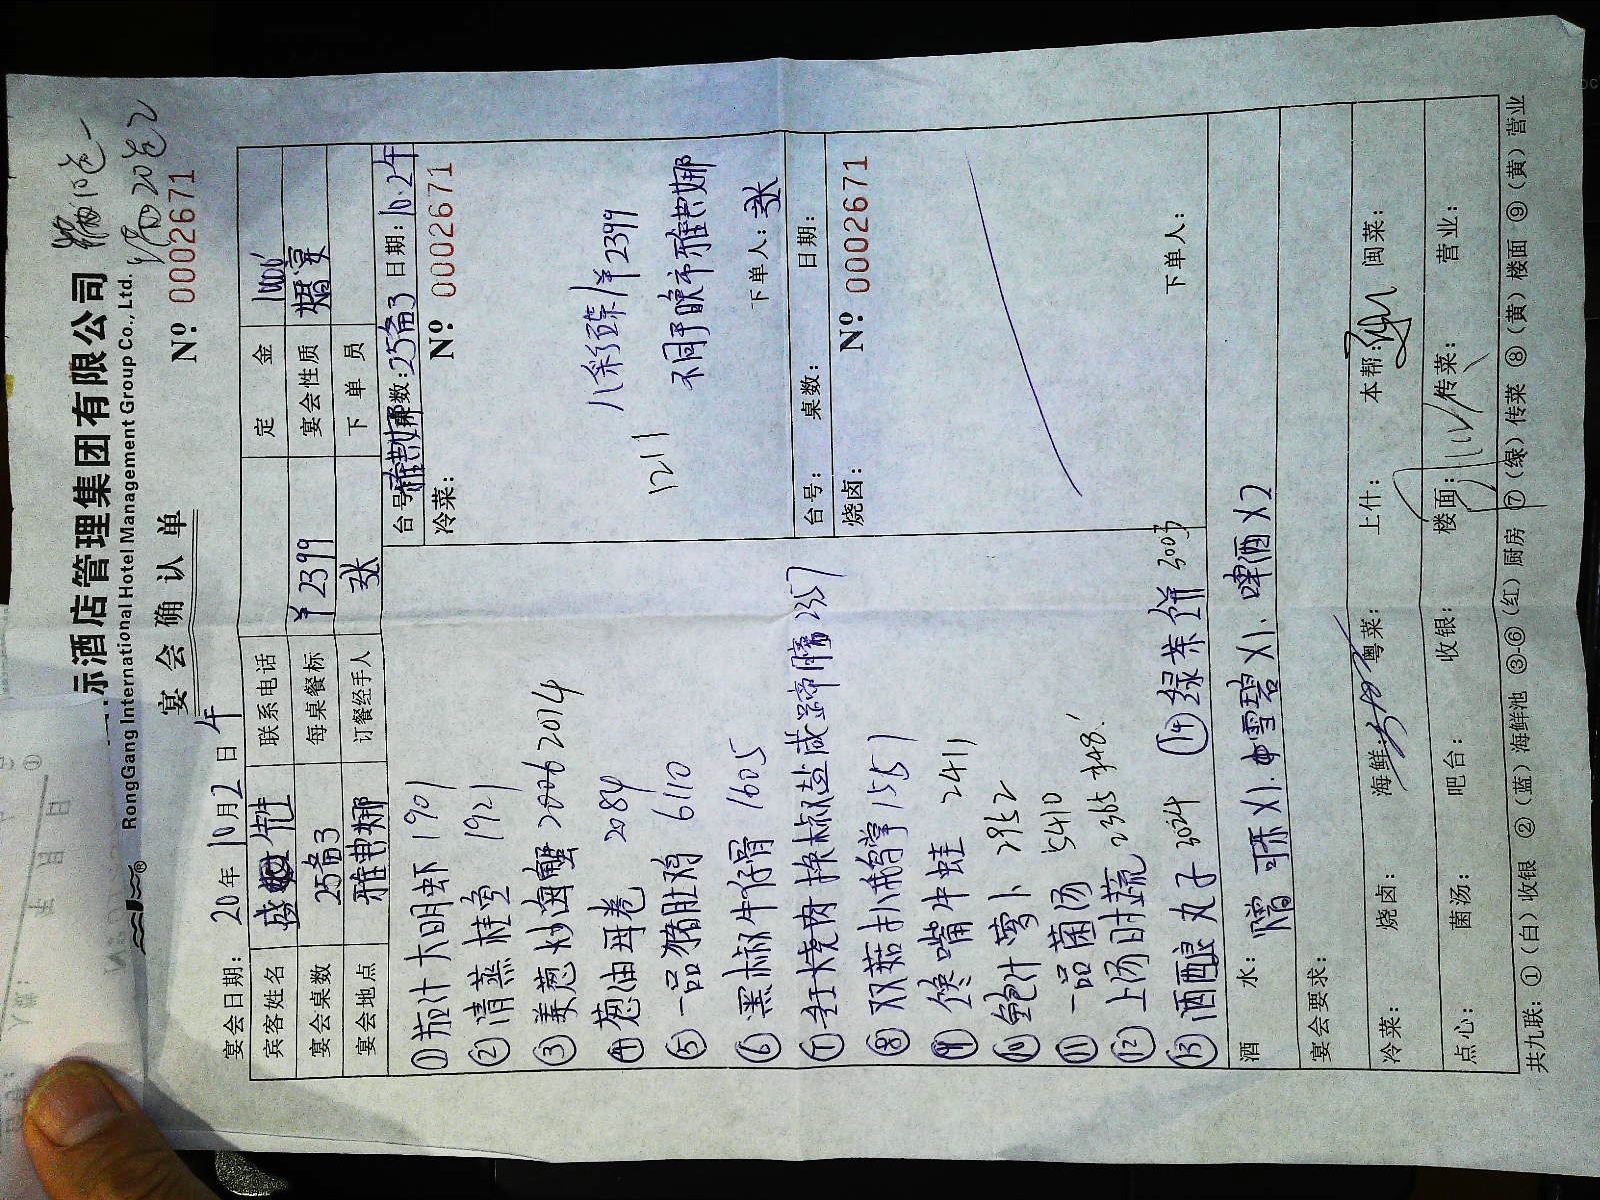 示酒店管理集团有限公司
RongGang International Hotel Management Group Co., Ltd.
宴会确认单
No 0002671
宴会日期: 20 年 10 月 2 日 午
宾客姓名 盛 先生 联系电话 定金 1000
宴会桌数 25备3 每桌餐标 ¥2399 宴会性质 婚宴
宴会地点 雅典娜 订餐经手人 张 下单员
①茄汁大明虾 1901
②清蒸桂鱼 1921
③姜葱炒海蟹 2006 2014
④葱油 卷 2084
⑤一品猪肚鸡 6110
⑥黑椒牛仔骨 1605
⑦红烧肉 椒盐咸蹄膀 2357
⑧双菇扒鹅掌 1551
⑨馋嘴牛蛙 2411
⑩鲍汁萝卜 2952
⑪一品菌汤 5410
⑫上汤时蔬 2365
⑬酒酿丸子 3024
⑭绿茶饼 3003
台号: 雅典娜 桌数: 25备3 日期: 10.2午
冷菜: No 0002671
八彩碟 2399
1211
不同于晚市雅典娜
下单人: 张
台号: 桌数: 日期:
烧卤: No 0002671
下单人:
酒水: 赠 可乐X1. 雪碧X1. 啤酒X2
宴会要求:
冷菜: 烧卤: 海鲜: 粤菜: 上什: 本帮: 闽菜:
点心: 菌汤: 吧台: 收银: 楼面: 传菜: 营业:
共九联: ①(白)收银 ②(蓝)海鲜池 ③-⑥(红)厨房 ⑦(绿)传菜 ⑧(黄)楼面 ⑨(黄)营业